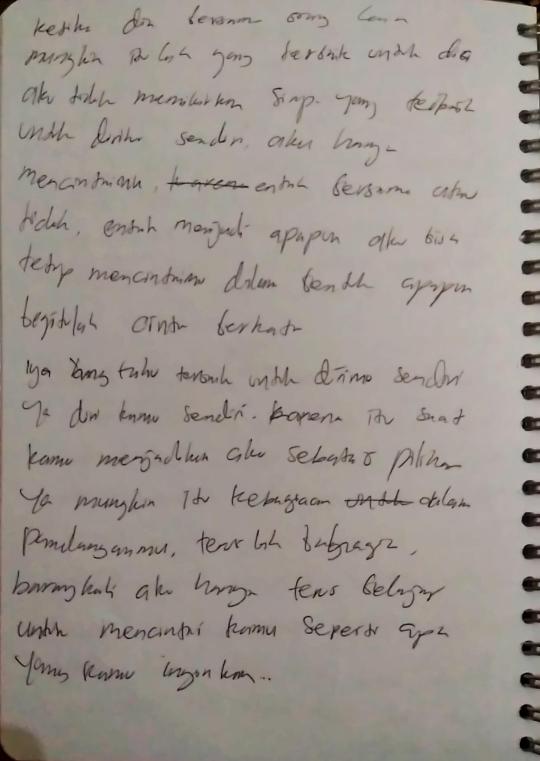 ketika dia bersama orang lain
mungkin itulah yang terbaik untuk dia
aku tidak memikirkan siapa yang terbaik
untuk diriku sendiri, aku hanya
mencintaimu, karena entah bersama atau
tidak, entah menjadi apapun aku bisa
tetap mencintaimu dalam bentuk apapun
begitulah cinta berkata
Iya Yang tahu terbaik untuk dirimu sendiri
Ya diri kamu sendiri. karena itu saat
kamu menjadikan aku sebatas pilihan
Ya mungkin itu kebagiaan untuk dalam
pemulanganmu, teruslah bahagia,
barangkali aku hanya terus belajar
untuk mencintai kamu seperti apa
Yang kamu inginkan..